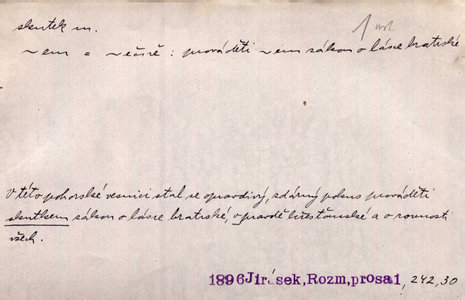 skutek m.
~em a ~ečně : prováděti ~em zákon o lásce bratrské
V této pohorské vesnici stal se opravdivý, zdárný pokus prováděti
skutkem zákon o lásce bratrské, v pravdě křesťanské a o rovnosti
všech.
1896 Jirásek, Rozm, prosa 1, 242, 30